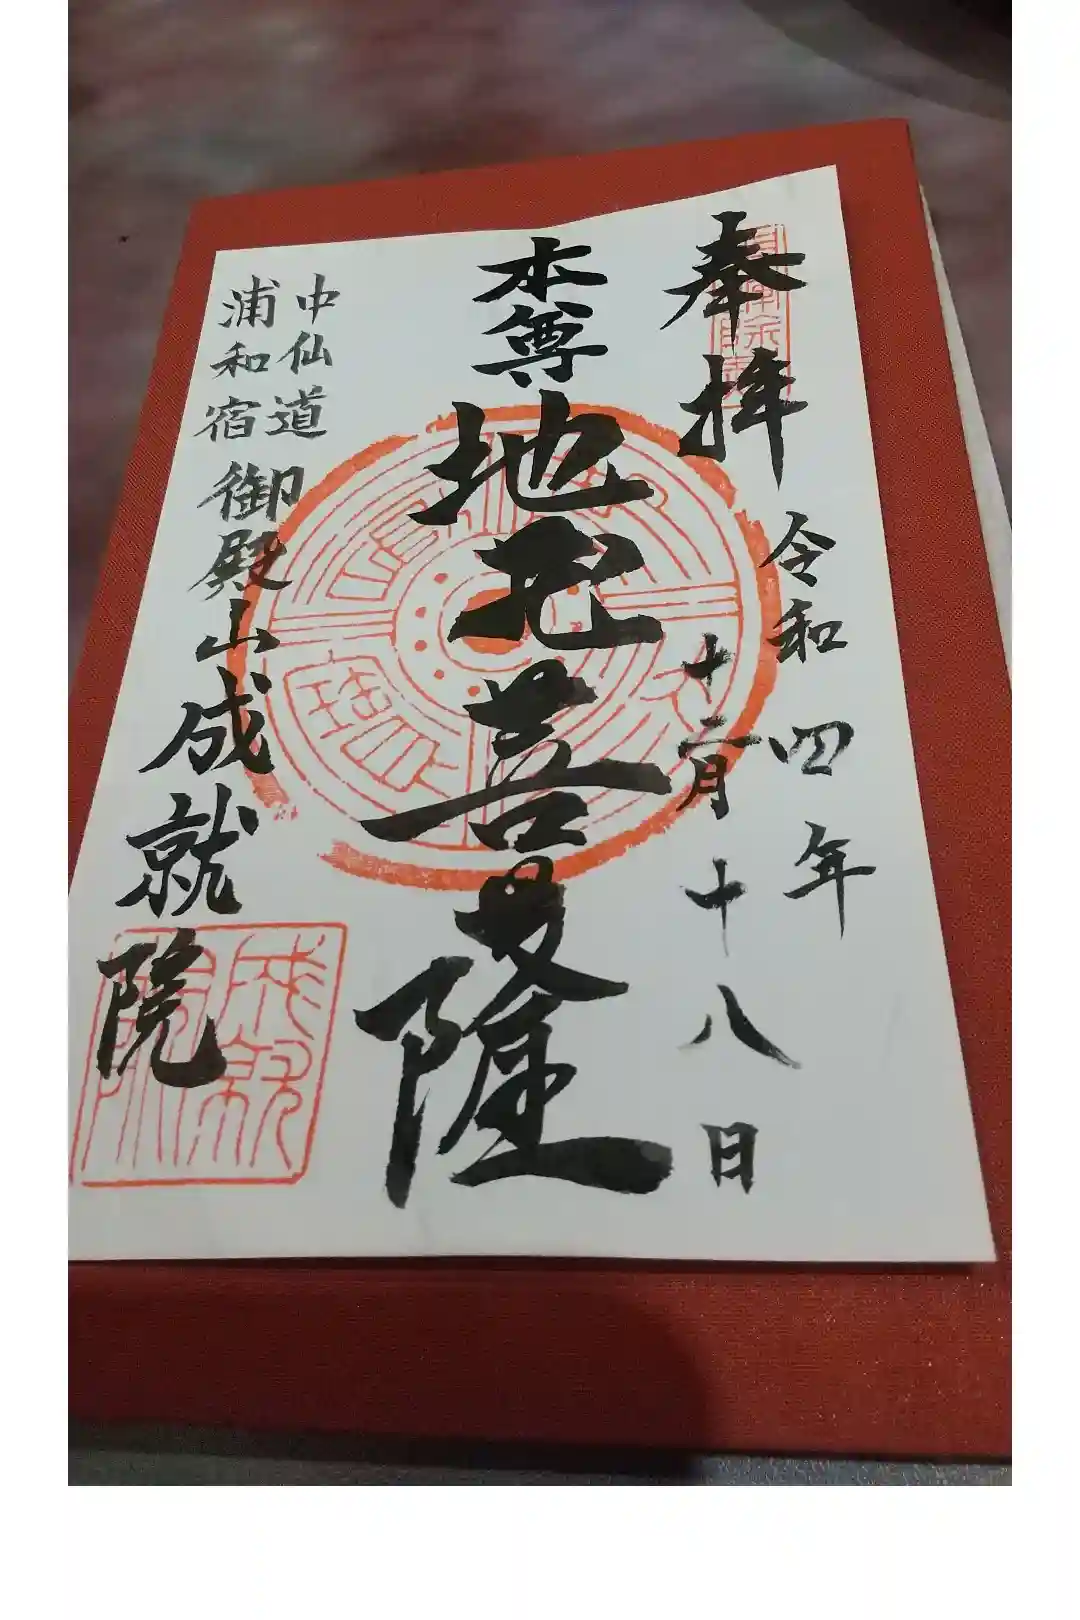 奉拝
令和四年
十二月十八日
本尊
地蔵菩薩
中仙道
浦和宿
御殿山成就院
成就
院印